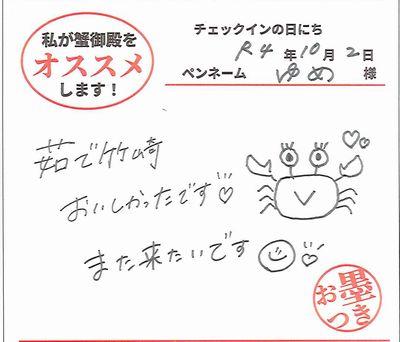 私が蟹御殿を
オススメ
します！
チェックインの日にち
R4年10月2日
ペンネーム ゆめ 様
茹で竹崎
おいしかったです♡
また来たいです
お墨つき